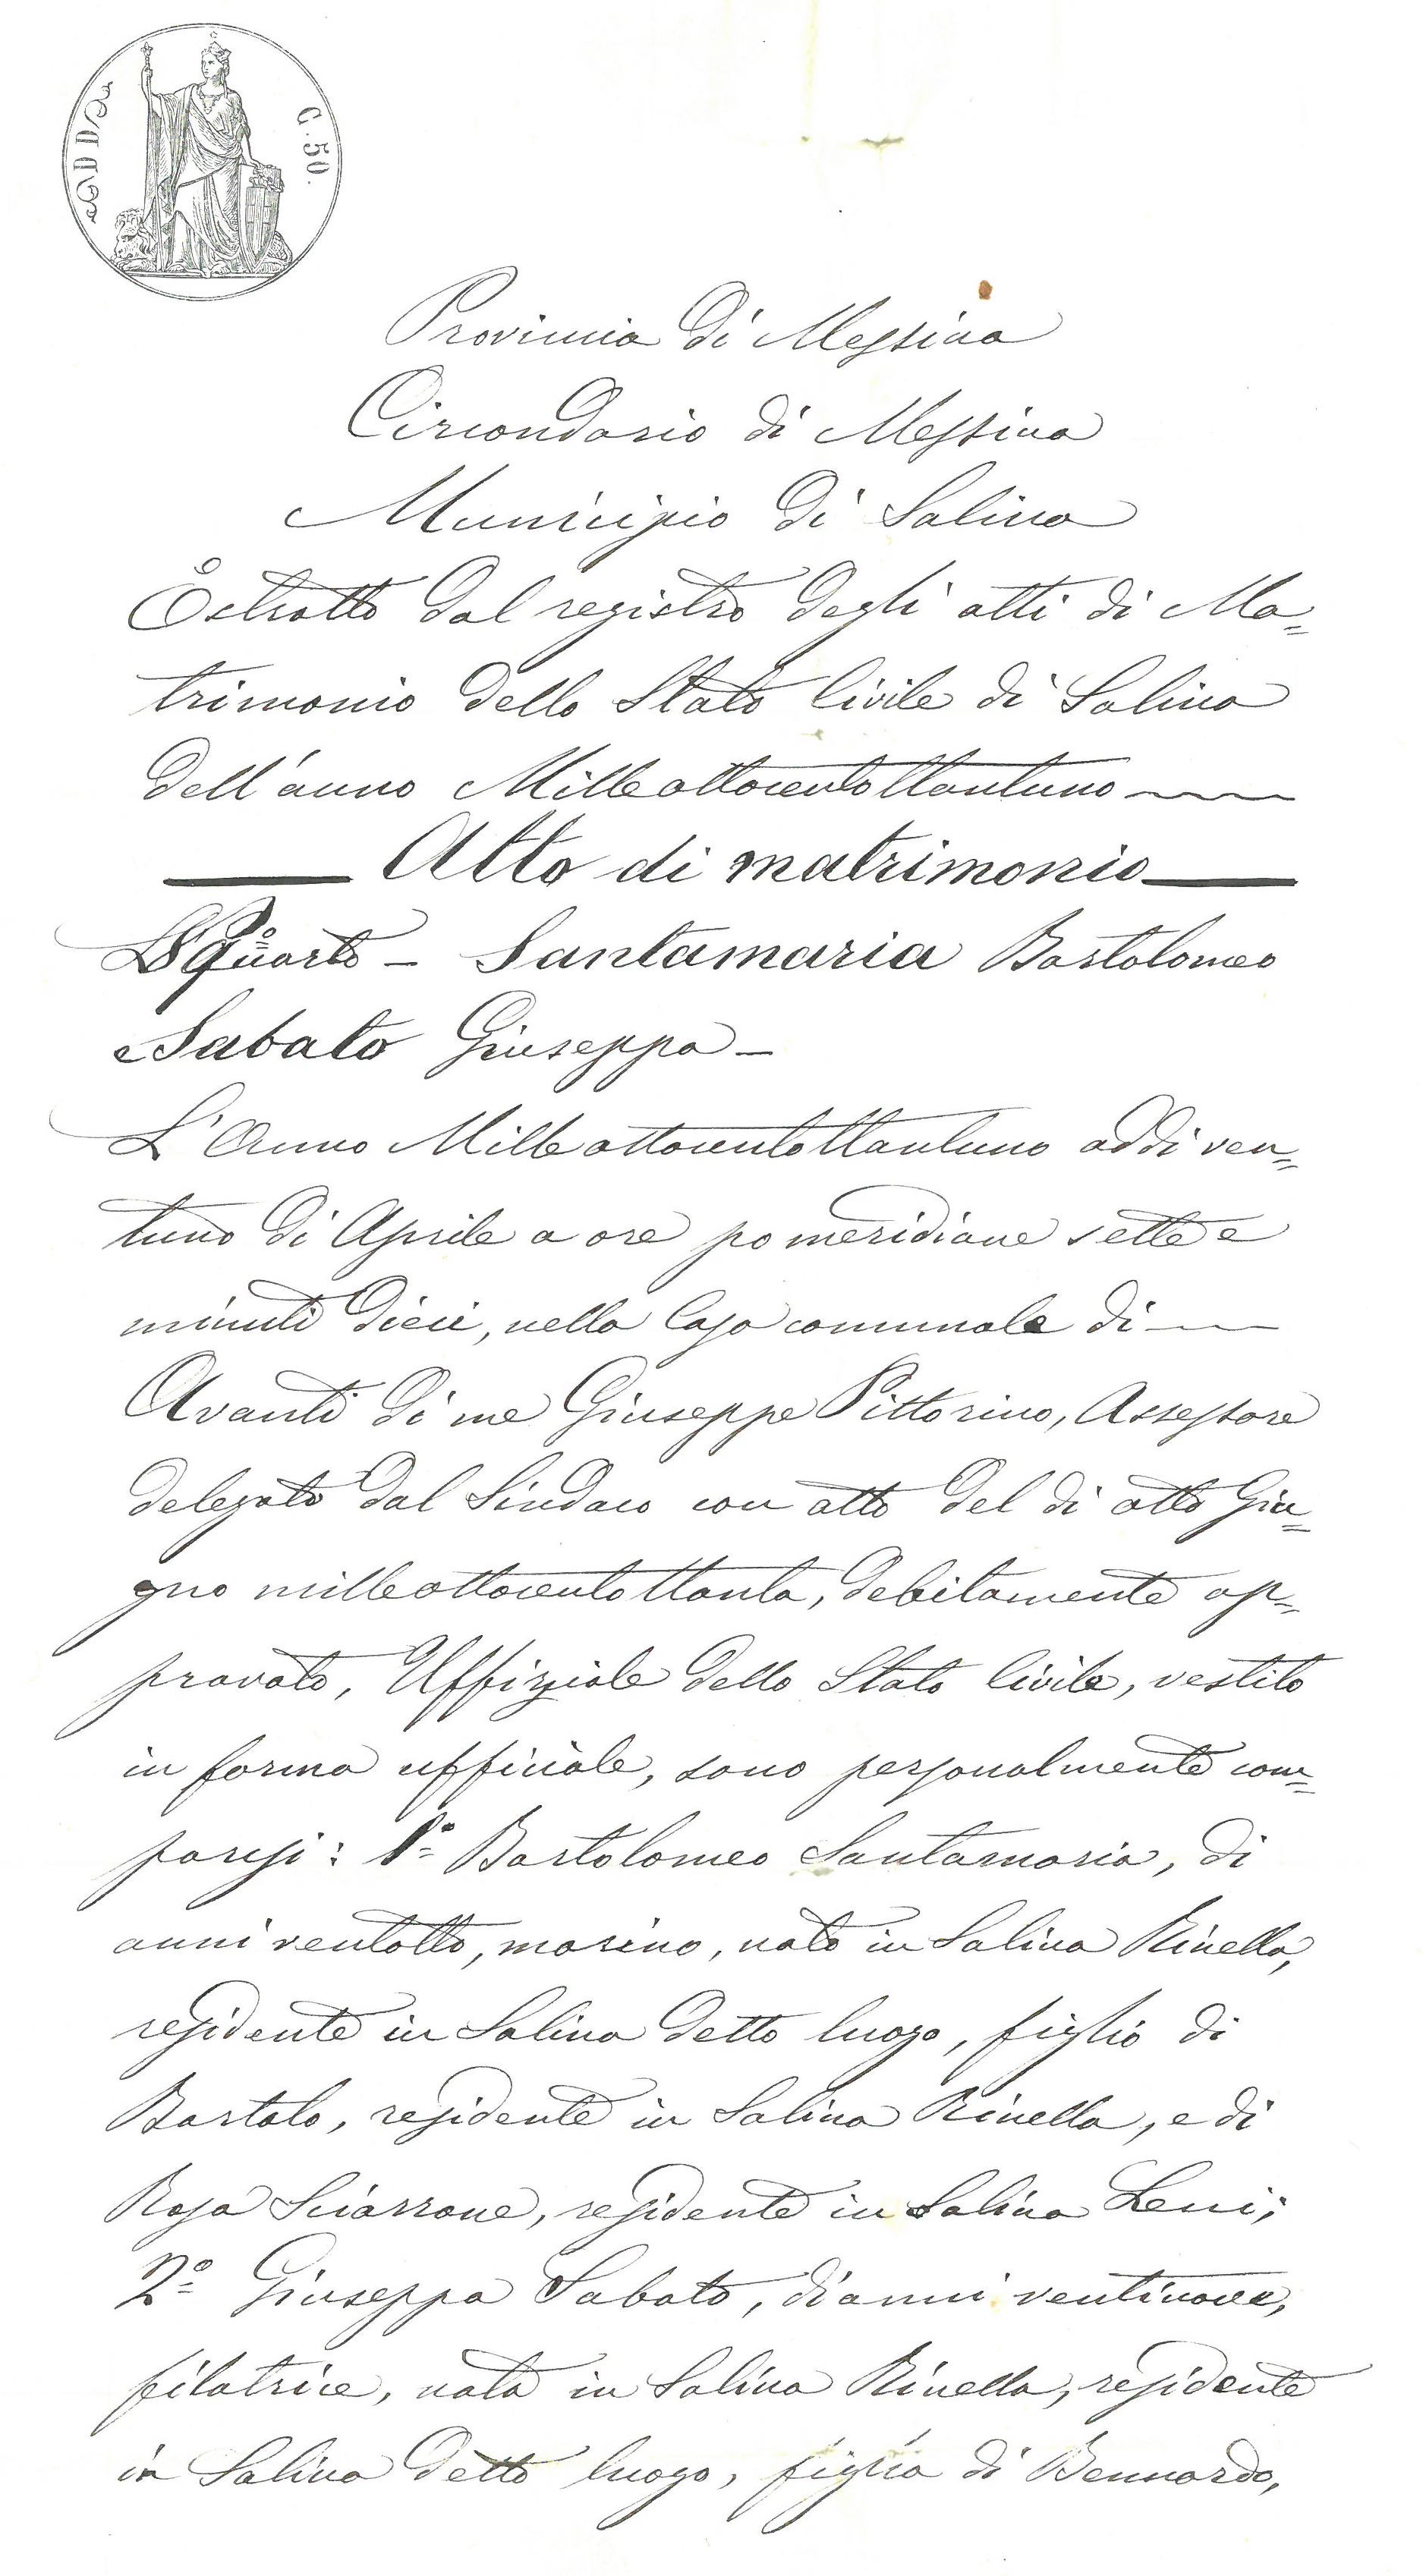 C. 50.
Provincia di Messina
Circondario di Messina
Municipio di Salina
Estratto dal registro degli atti di Ma=
trimonio dello Stato Civile di Salina
dell'anno Milleottocentottantuno
Atto di matrimonio
Quarto - Santamaria Bartolomeo
Sabato Giuseppa -
L'Anno Milleottocentottantuno addi ven=
tuno di Aprile a ore pomeridiane sette e
minuti dieci, nella Casa comunale di
Avanti di me Giuseppe Pittorino, Assessore
delegato dal Sindaco con atto del di otto Giu=
gno milleottocentottanta, debitamente ap=
provato, Uffiziale dello Stato Civile, vestito
in forma ufficiale, sono personalmente com=
parsi: 1º Bartolomeo Santamaria, di
anni ventotto, marino, nato in Salina Rinella,
residente in Salina detto luogo, figlio di
Bartolo, residente in Salina Rinella, e di
Rosa Sciarrone, residente in Salina Leni;
2º Giuseppa Sabato, di anni ventinove,
filatrice, nata in Salina Rinella, residente
in Salina detto luogo, figlia di Bennardo,